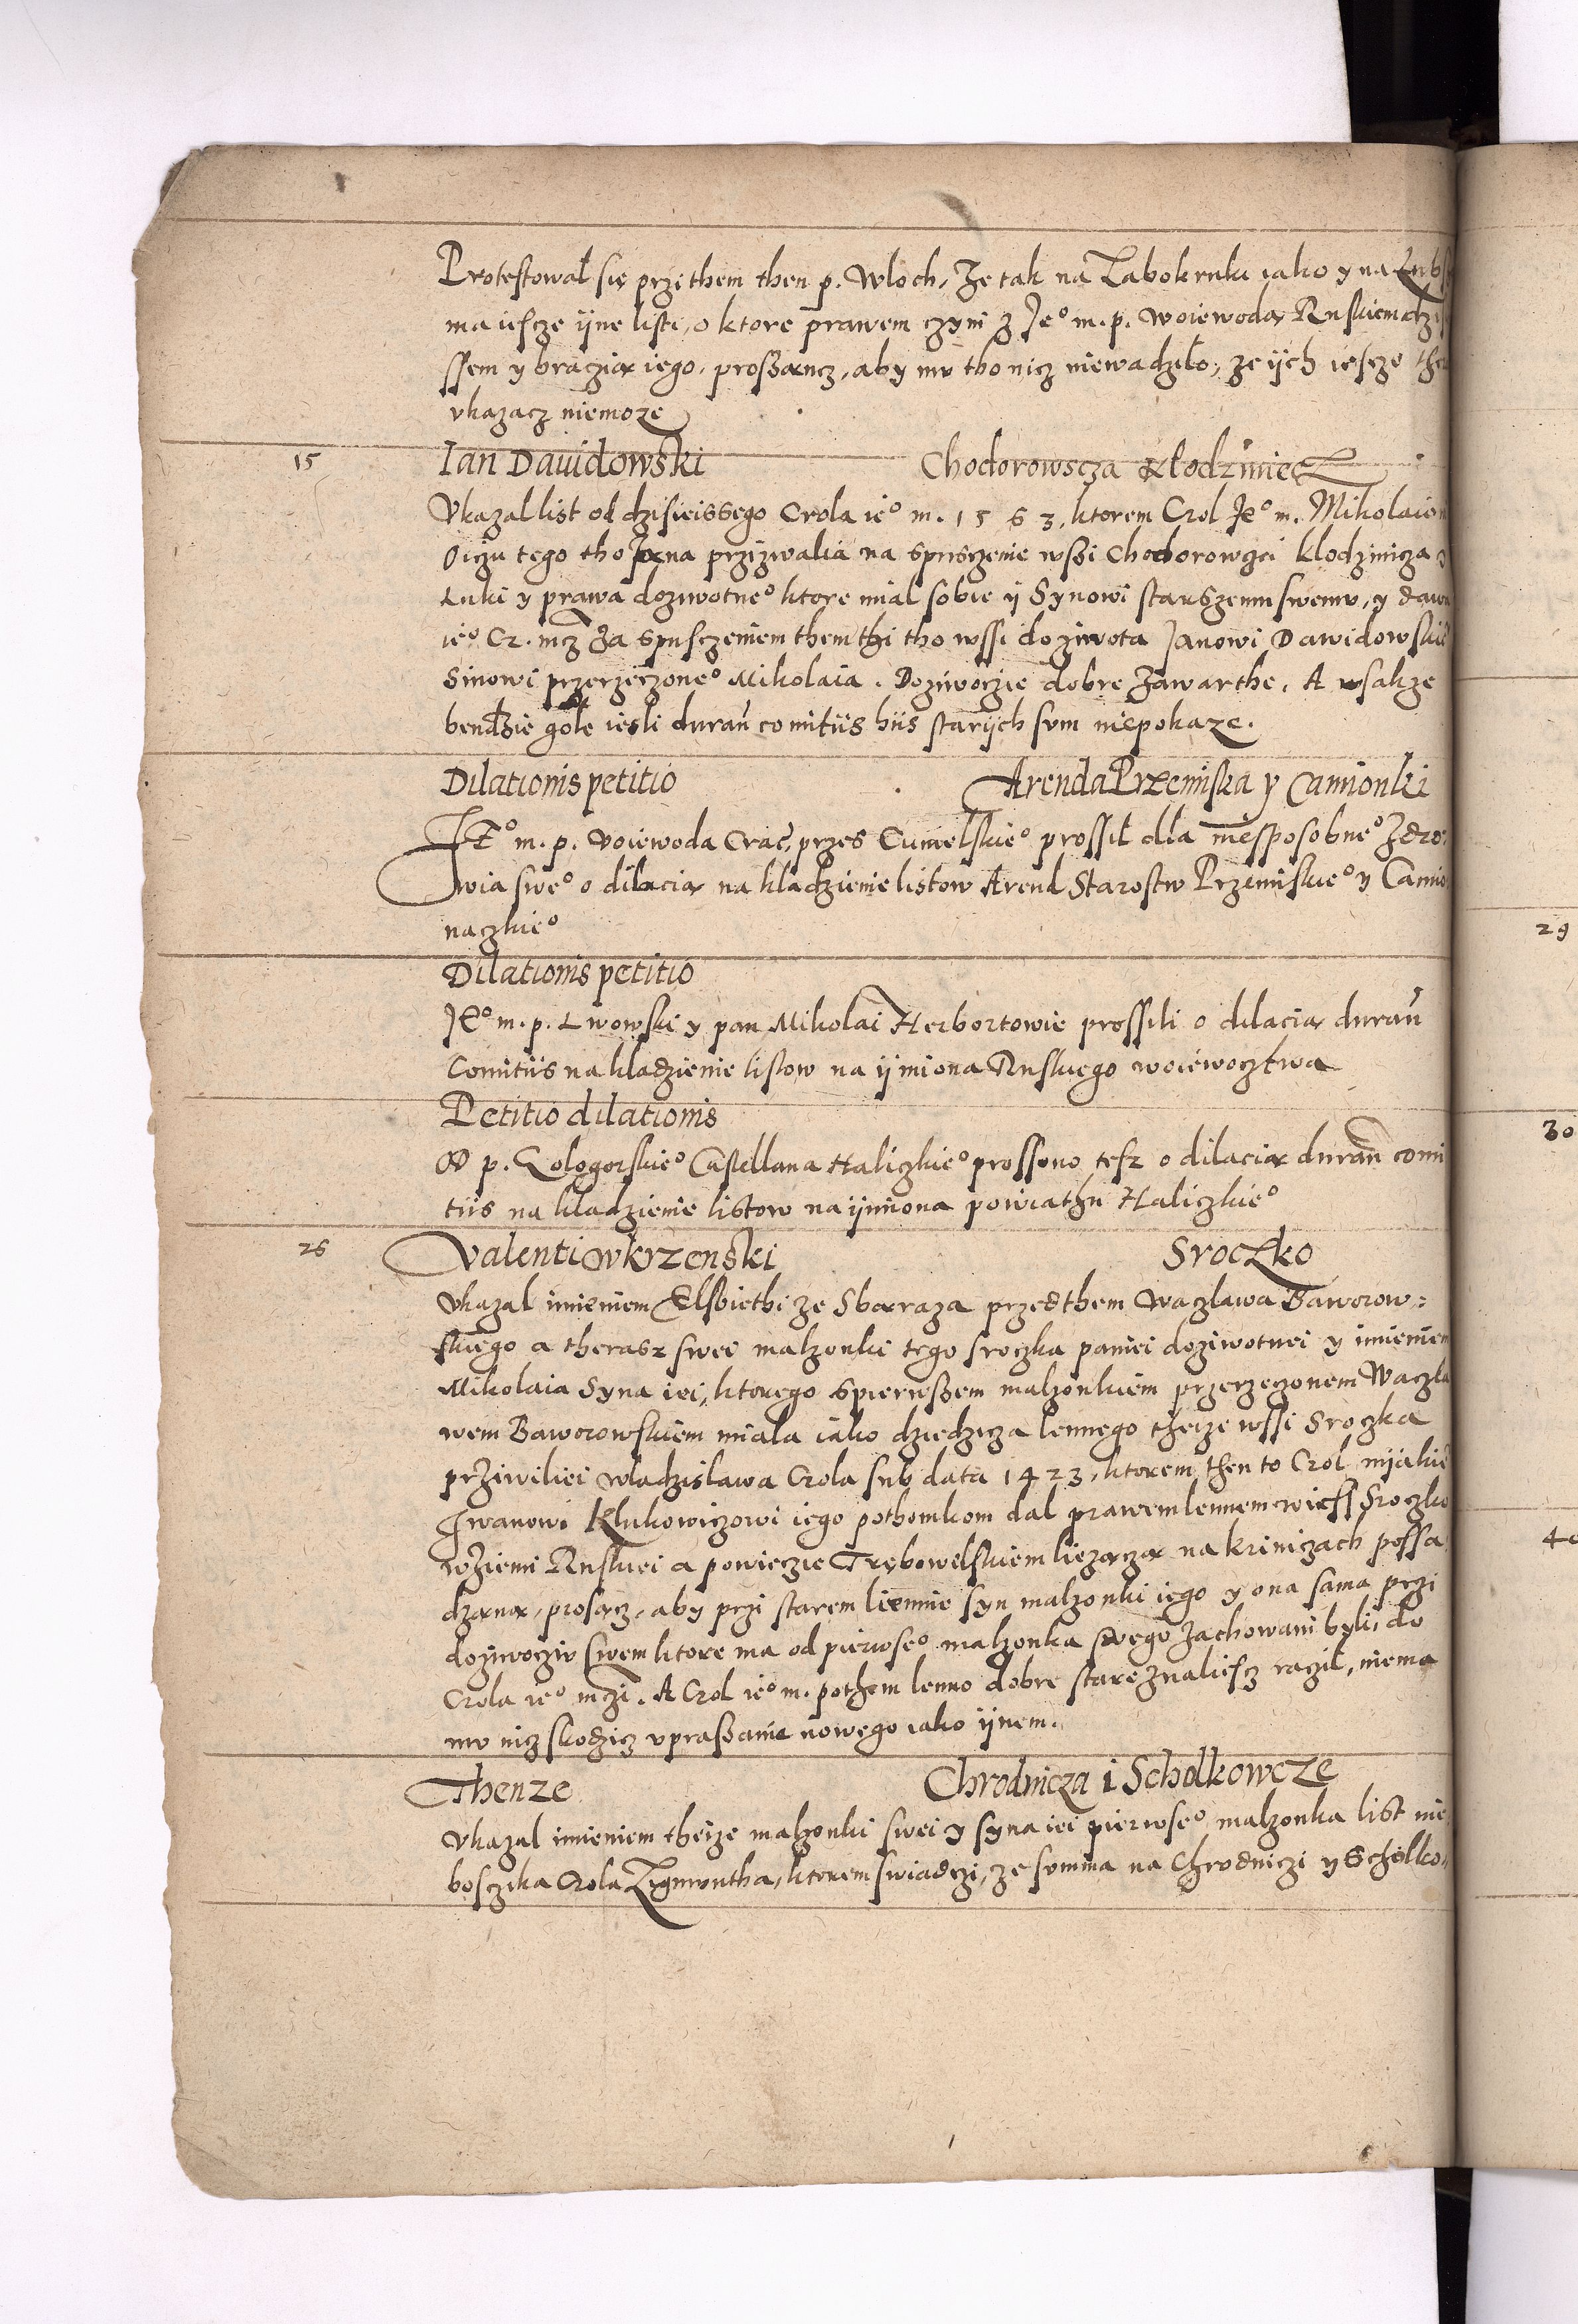 Protestował się przithem then p. Wloch, że tak na Zabokruki iako y na
ma iescze ijne listi, o ktore prawem czyni z Je° m. p. woiewodą Ruskiem
ssem y braczią iego, prossąncz, aby mu tho nicz niewadziło, ze ijch iescze
vkazacz niemoze
15 Ian Dauidowski Chodorowscza Kłodziniecz
Vkazal list od dzisieissego Crola ie° m. 1563, ktorem Crol Je° m. Mikolaiow
Oiczu tego tho Jana przizwalia na spusczenie wssi Chodorowczi klodzinicza
Luki y prawa dożiwotne° ktore mial sobie ij Synowi starszemu swemu, y
ie° Cr. mcz Za spusczeniem them thi tho wssi do ziwota Janowi Dawidowskie
Sinowi przerzeczone° Mikolaia. Doziwoczie dobre Zawarthe. A wsakze
bendzie gołe iesli durañ comitiis hiis starijch sum niepokaze.
Dilationis petitio Arenda Przemiska y Camionki
JE° m. p. voiewoda Crac. przes Cumelskie° prossił dla niesposobne° Zdro-
wia swe° o dilacią na kladzienie listow Arend Starostw Przemiskie° y Camio
naczkie°
Dilationis petitio
JE° m. p. Lwowski y pan Mikolai Herbortowie prossili o dilacią durañ
Comitiis na kladzienie listow na ijmiona Ruskiego woiewocztwa
Petitio dilationis
Od p. Gologorskie° Castellana Haliczkie° prossono tesz o dilacią durañ comi
tiis na kladzienie listow na ijmiona powiathu Haliczkie°
26 Valenti wkrzenski Sroczko
Vkazal imieniem Elsbiethi ze Sbaraza przedthem waczlawa Baworow=
skiego a therasz swei malzonki tego sroczka paniei doziwotnei y imieniem
Mikolaia Syna iei, ktorego spierwssem malzonkiem przerzeczonem Waczla
wem Baworowskiem miala iako dziedzicza lennego theize wssi Sroczka
prziwiliei wladzislawa Crola sub data 1423, ktorem then to Crol nijakie
Iwanowi Klukowiczowi iego pothomkom dal prawem lennem wiess Sroczko
wziemi Ruskiei a powieczie Trębowelskiem liezączą na kriniczach possa
dzaną, prosącz, aby przi starem liennie syn malzonki iego y ona sama przi
doziwocziu swem ktore ma od pierwse° malzonka swego zachowani byli, do
Crola ie° mczi. A Crol ie° m. pothem lenno dobre stare znaliescz raczil, niema
mu nicz skodzicz vprassanie nowego iako ijnem.
Thenze Chrodnicza i Scholkowcze
vkazal imieniem theize malzonki swei y syna iei pierwse° malzonka list nie
bosczika Crola Zigmuntha, ktorem swiadczi, ze summa na Chrodniczi y Scholko-
29
30